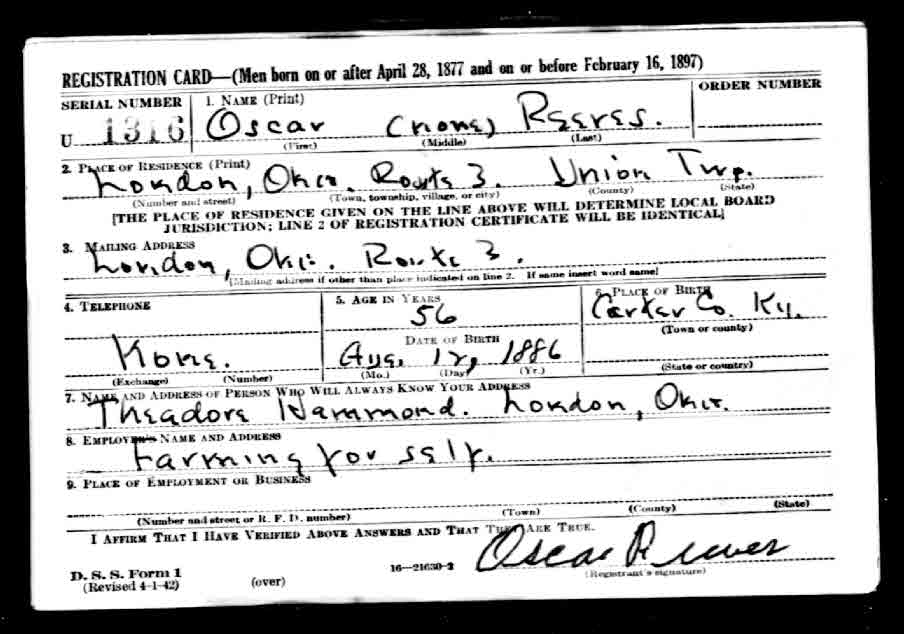 REGISTRATION CARD—(Men born on or after April 28, 1877 and on or before February 16, 1897)
SERIAL NUMBER 1. NAME (Print) ORDER NUMBER
U 1316 Oscar (none) Reeves.
(First) (Middle) (Last)
2. PLACE OF RESIDENCE (Print)
London, Ohio. Route 3. Union Twp.
(Number and street) (Town, township, village, or city) (County) (State)
[THE PLACE OF RESIDENCE GIVEN ON THE LINE ABOVE WILL DETERMINE LOCAL BOARD
JURISDICTION; LINE 2 OF REGISTRATION CERTIFICATE WILL BE IDENTICAL]
3. MAILING ADDRESS
London, Ohio. Route 3.
[Mailing address if other than place indicated on line 2. If same insert word same]
4. TELEPHONE 5. AGE IN YEARS 6. PLACE OF BIRTH
56 Carter Co. Ky.
DATE OF BIRTH (Town or county)
None. Aug. 12, 1886
(Exchange) (Number) (Mo.) (Day) (Yr.) (State or country)
7. NAME AND ADDRESS OF PERSON WHO WILL ALWAYS KNOW YOUR ADDRESS
Theadore Hammond. London, Ohio.
8. EMPLOYER'S NAME AND ADDRESS
Farming for self.
9. PLACE OF EMPLOYMENT OR BUSINESS
(Number and street or R. F. D. number) (Town) (County) (State)
I AFFIRM THAT I HAVE VERIFIED ABOVE ANSWERS AND THAT THEY ARE TRUE.
D. S. S. Form 1
(Revised 4-1-42) (over) 16—21630-2 Oscar Reeves
(Registrant's signature)